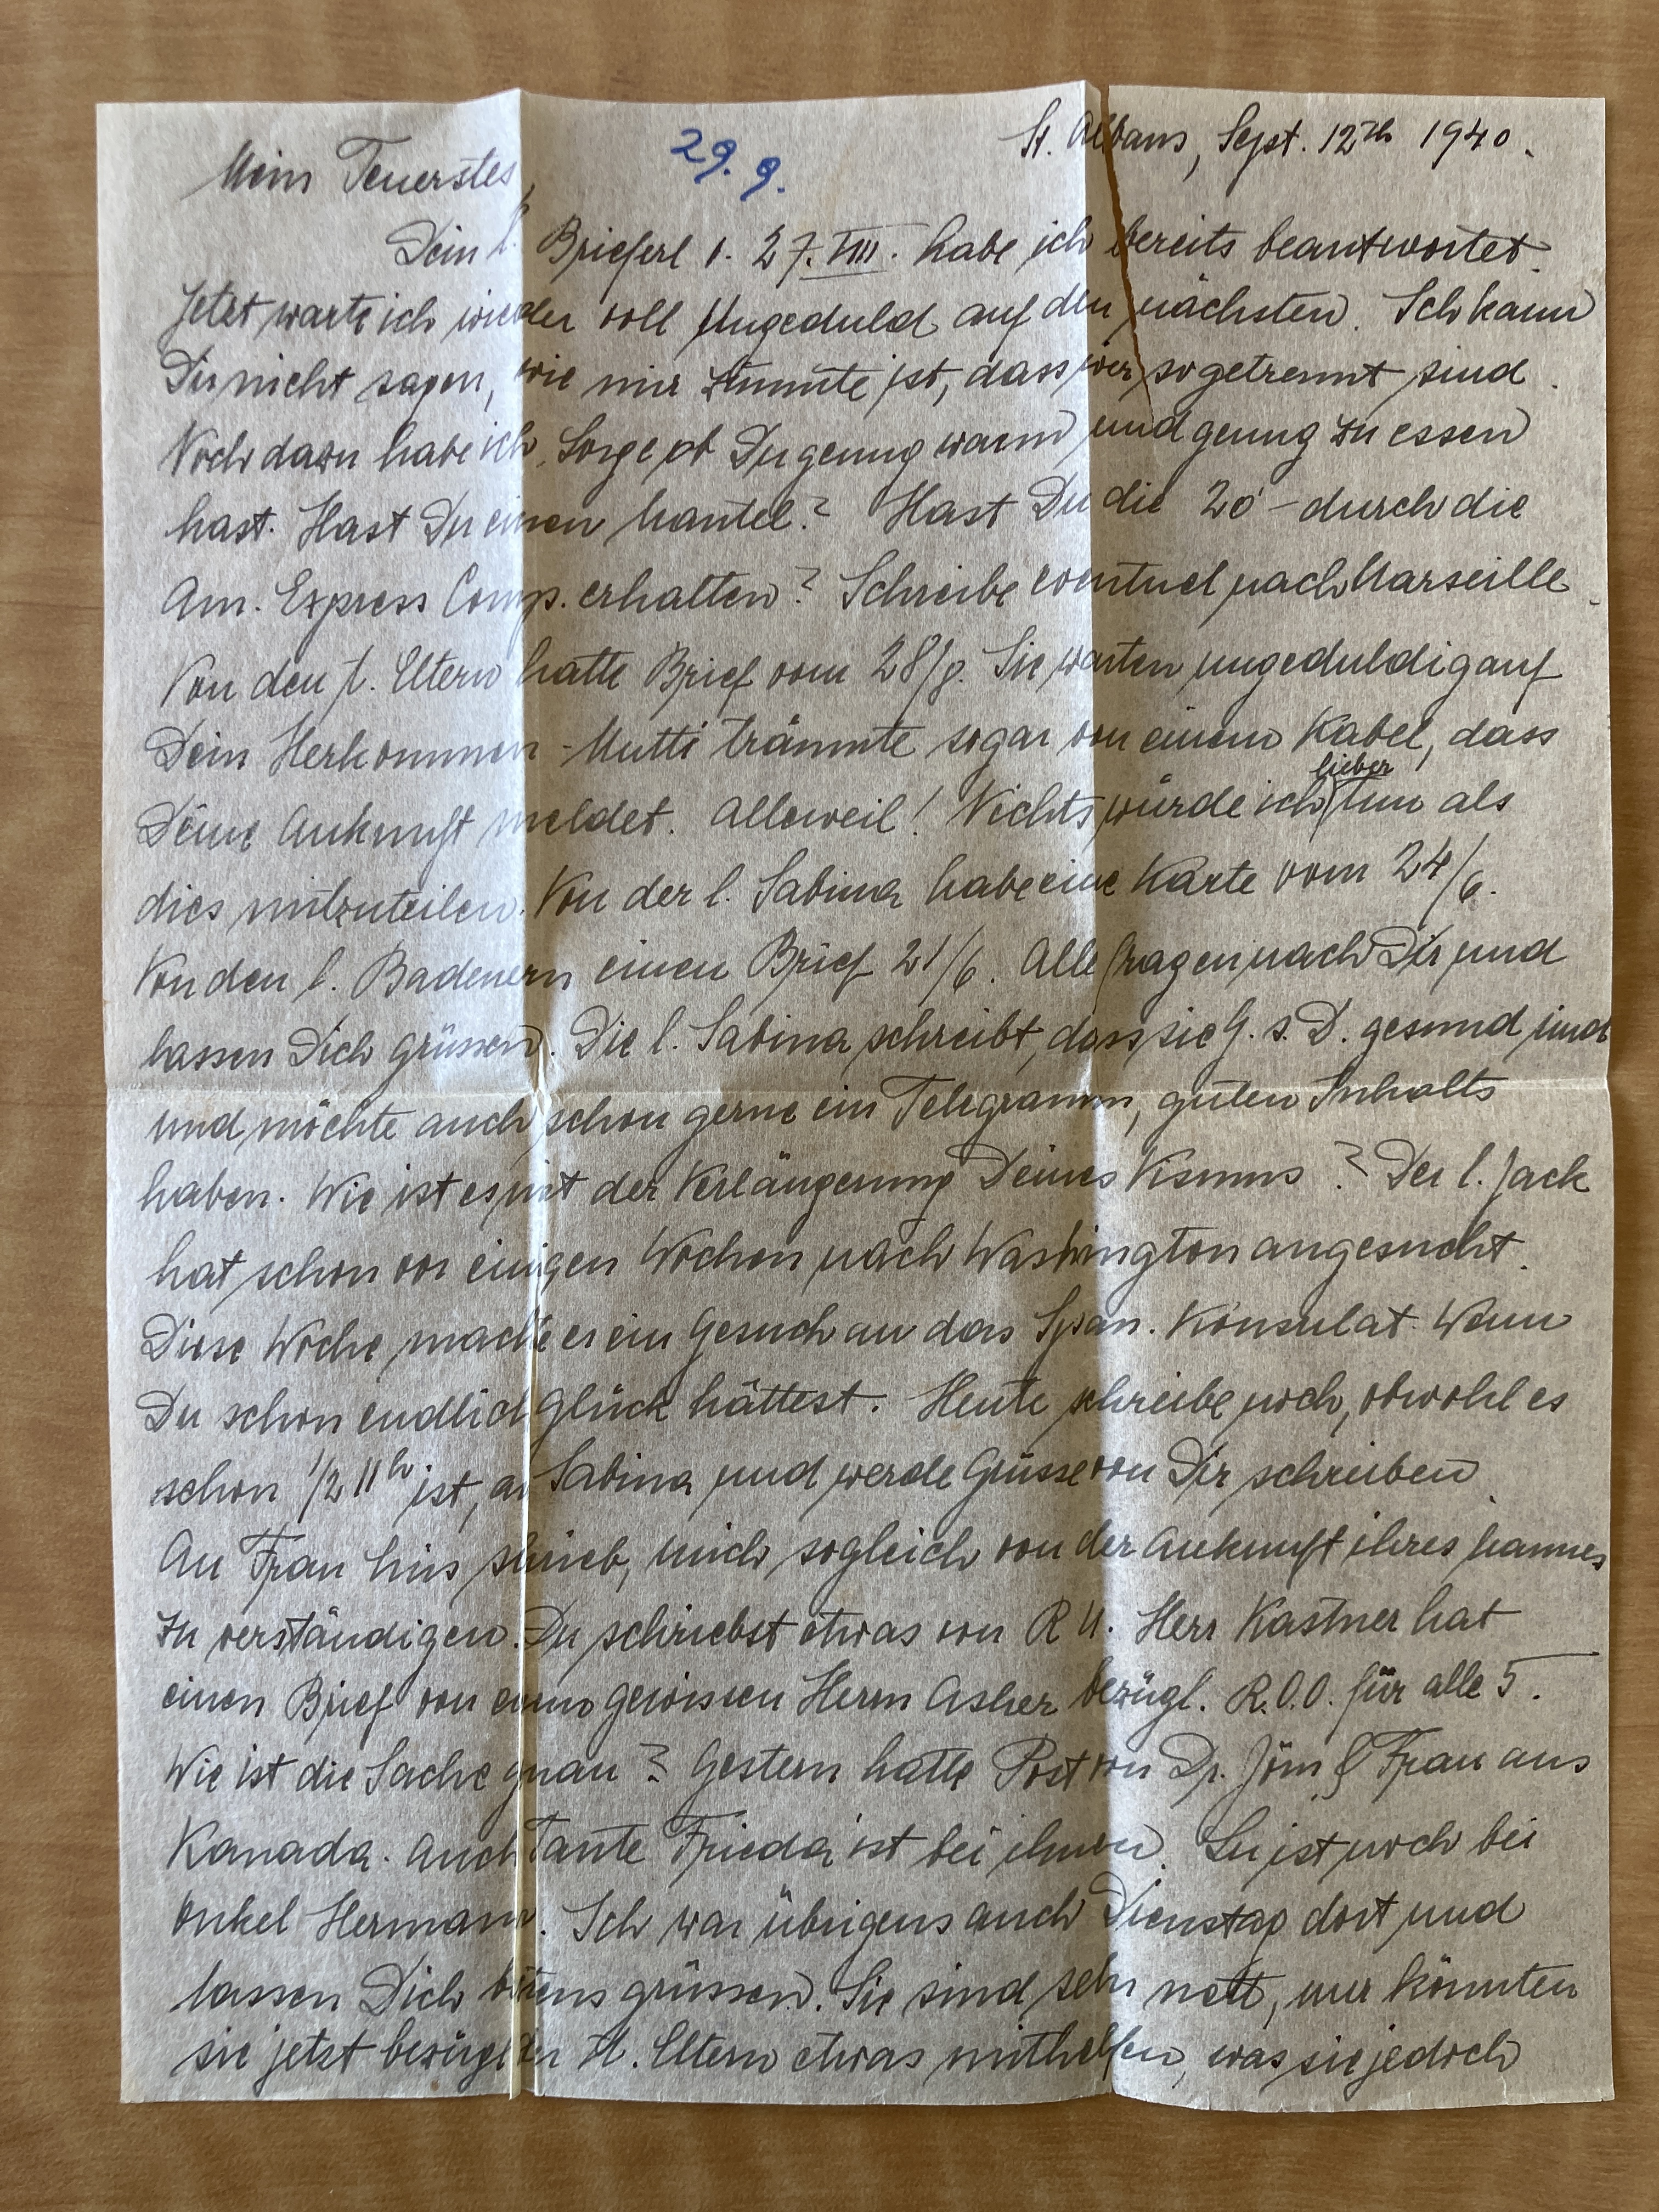 St. Albans, Sept. 12th 1940.
29. 9.
Mein Teuerstes,
Dein l. Brieferl v. 27. VIII. habe ich bereits beantwortet.
Jetzt warte ich wieder voll Ungeduld auf den nächsten. Ich kann
Dir nicht sagen, wie mir zumute ist, dass wir so getrennt sind.
Noch dazu habe ich Sorge ob Du genug warm und genug zu essen
hast. Hast Du einen Mantel? Hast Du die 20 - durch die
Am. Express Comp. erhalten? Schreibe eventuel nach Marseille.
Von den l. Eltern hatte Brief vom 28/8. Sie warten ungeduldig auf
Dein Herkommen - Mutti träumte sogar von einem Kabel, dass
Deine Ankunft meldet. Alleweil! Nichts würde ich lieber tun als
dies mitzuteilen. Von der l. Sabina habe eine Karte vom 24/6.
Von den l. Badenern einen Brief 21/6. Alle fragen nach Dir und
lassen Dich grüssen. Die l. Sabina schreibt, dass sie G. s. D. gesund sind
und möchte auch schon gerne ein Telegramm, guten Inhalts
haben. Wie ist es mit der Verlängerung Deines Visums? Der l. Jack
hat schon vor einigen Wochen nach Washington angesucht.
Diese Woche machte er ein Gesuch an das Span. Konsulat. Wenn
Du schon endlich Glück hättest. Heute schreibe noch, obwohl es
schon 1/2 11h ist, an Sabina und werde Grüsse von Dir schreiben.
An Frau schrieb, mich sogleich von der Ankunft ihres Mannes
zu verständigen. Du schriebst etwas von R U. Herr Kastner hat
einen Brief von einem gewissen Herrn Asher bezügl. R.O.O. für alle 5.
Wie ist die Sache genau? Gestern hatte Post von Dr. & Frau aus
Kanada. Auch Tante Frieda ist bei ihnen. Lu ist noch bei
Onkel Hermann. Ich war übrigens auch Dienstag dort und
lassen Dich bestens grüssen. Sie sind sehr nett, nur könnten
sie jetzt bezügl. der ll. Eltern etwas mithelfen, was sie jedoch